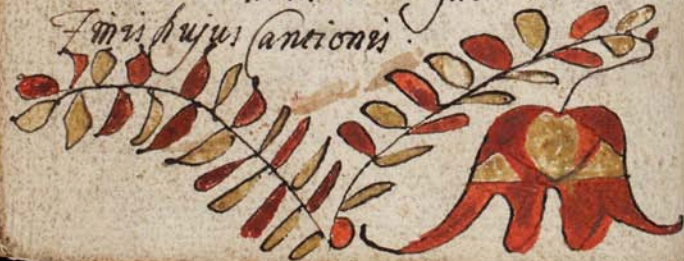 Finis hujus Cantionis.